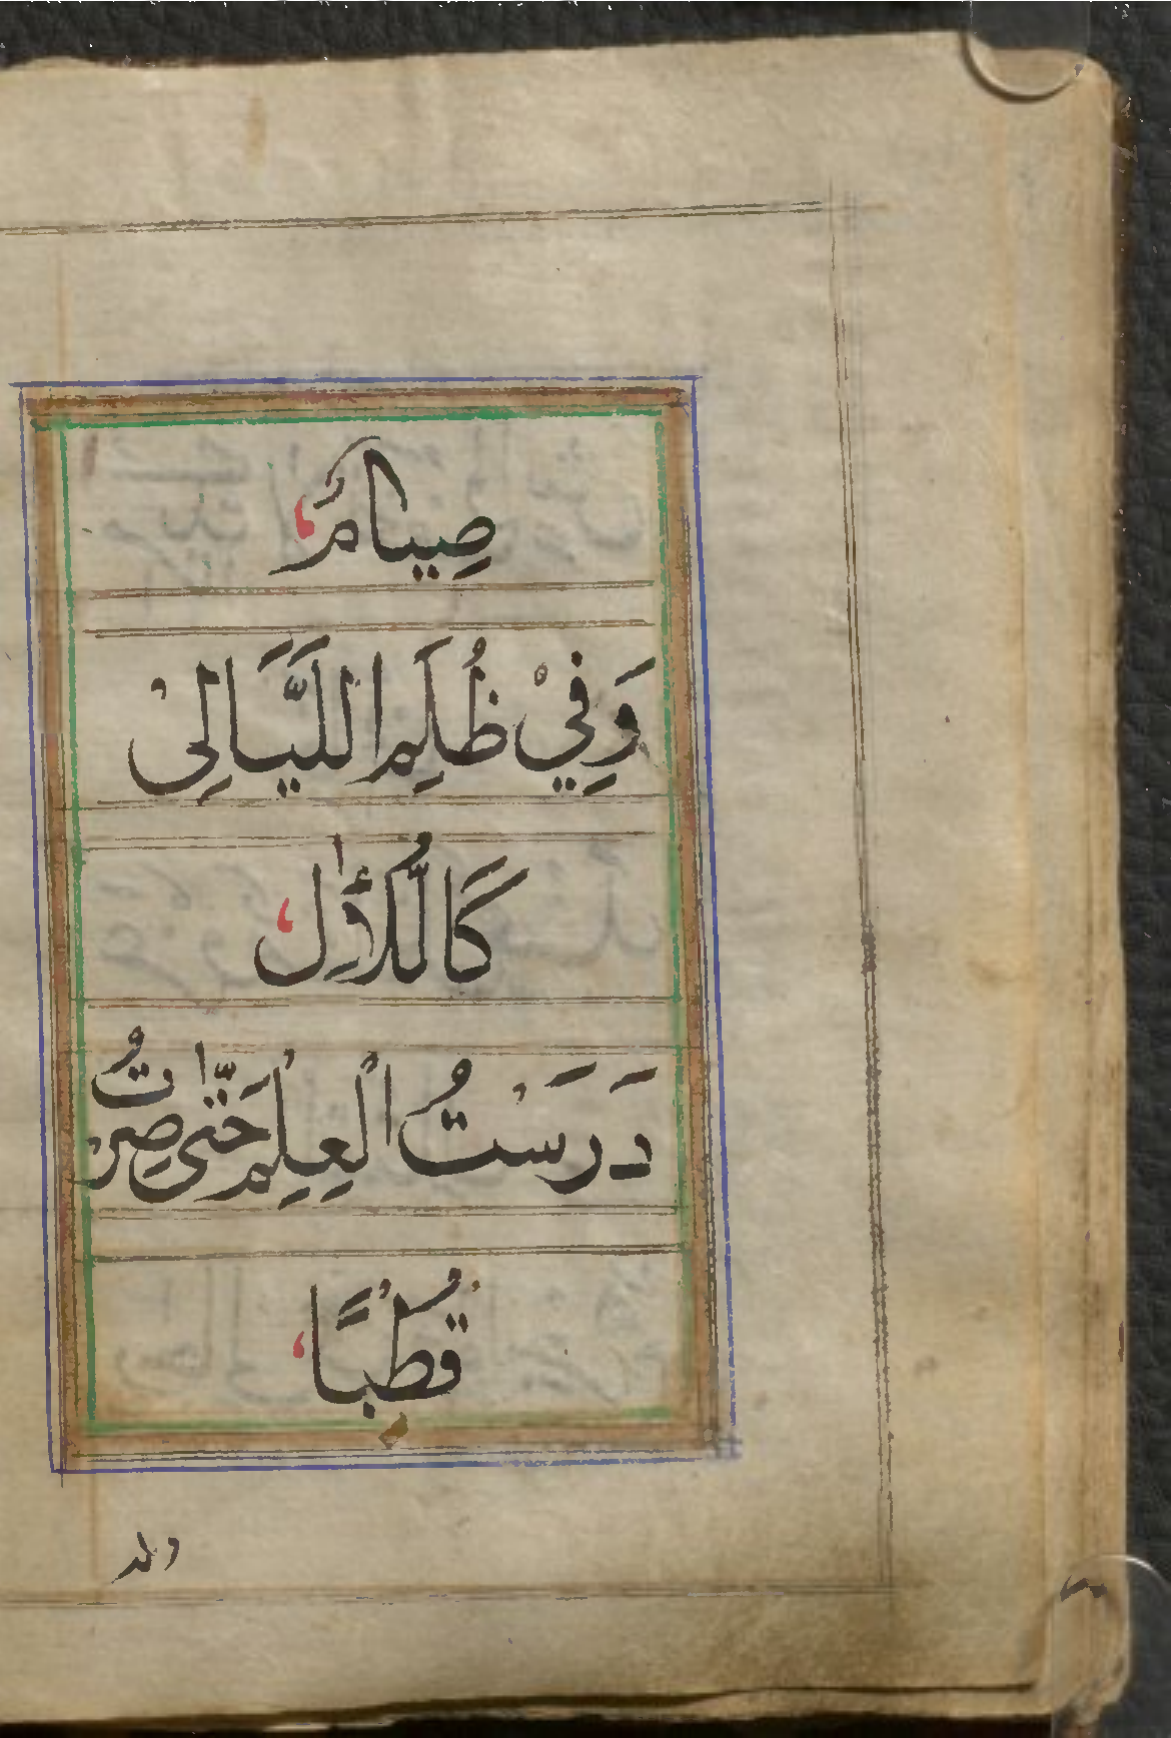 صِيَامٌ
وَفِيْ ظُلَمِ اللَّيَالِیْ
كَا لُلاٰلِ
دَرَسْتُ الْعِلْمَ حَتّٰی صِرْتُ
قُطْبًا